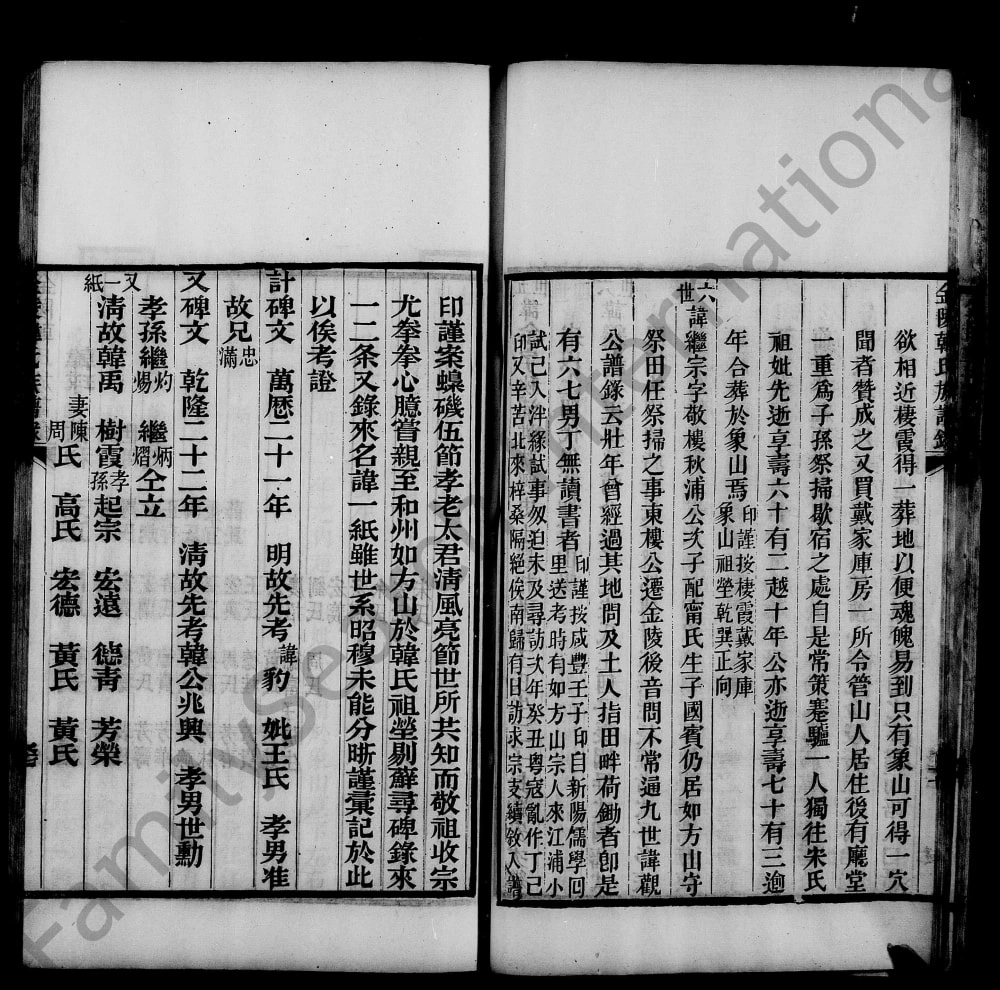 金陵韓氏族譜錄
欲相近棲霞得一葬地以便魂魄易到只有象山可得一穴
聞者贊成之又買戴家庫房一所令管山人居住後有廳堂
一重爲子孫祭掃歇宿之處自是常策蹇驢一人獨往朱氏
祖妣先逝享壽六十有二越十年公亦逝享壽七十有三逾
年合葬於象山焉 印謹按棲霞戴家庫
象山祖塋乾巽正向
六世
諱繼宗字敬樓秋浦公次子配甯氏生子國賓仍居如方山守
祭田任祭掃之事東樓公遷金陵後音問不常通九世諱觀
公譜錄云壯年曾經過其地問及土人指田畔荷鋤者卽是
有六七男丁無讀書者 印謹按咸豐壬子印自新陽儒學囘
里送考時有如方山宗人來江浦小
試己入泮緣試事匆迫未及尋訪次年癸丑粵寇亂作丁己
印又辛苦北來梓桑隔絕俟南歸有日訪求宗支續敘入譜
印謹案蟂磯伍節孝老太君清風亮節世所共知而敬祖收宗
尤拳拳心臆嘗親至和州如方山於韓氏祖塋剔蘚尋碑錄來
一二条又錄來名諱一紙雖世系昭穆未能分晰謹彙記於此
以俟考證
計碑文 萬厯二十一年 明故先考諱豹 妣王氏 孝男准
故兄忠
滿
又碑文 乾隆二十二年 清故先考韓公兆興 孝男世勳
孝孫繼灼 繼炳
煬 熠
仝立
又一紙
清故韓禹 樹霞孝
孫起宗 宏遠 德青 芳榮
妻陳
周氏 高氏 宏德 黃氏 黃氏